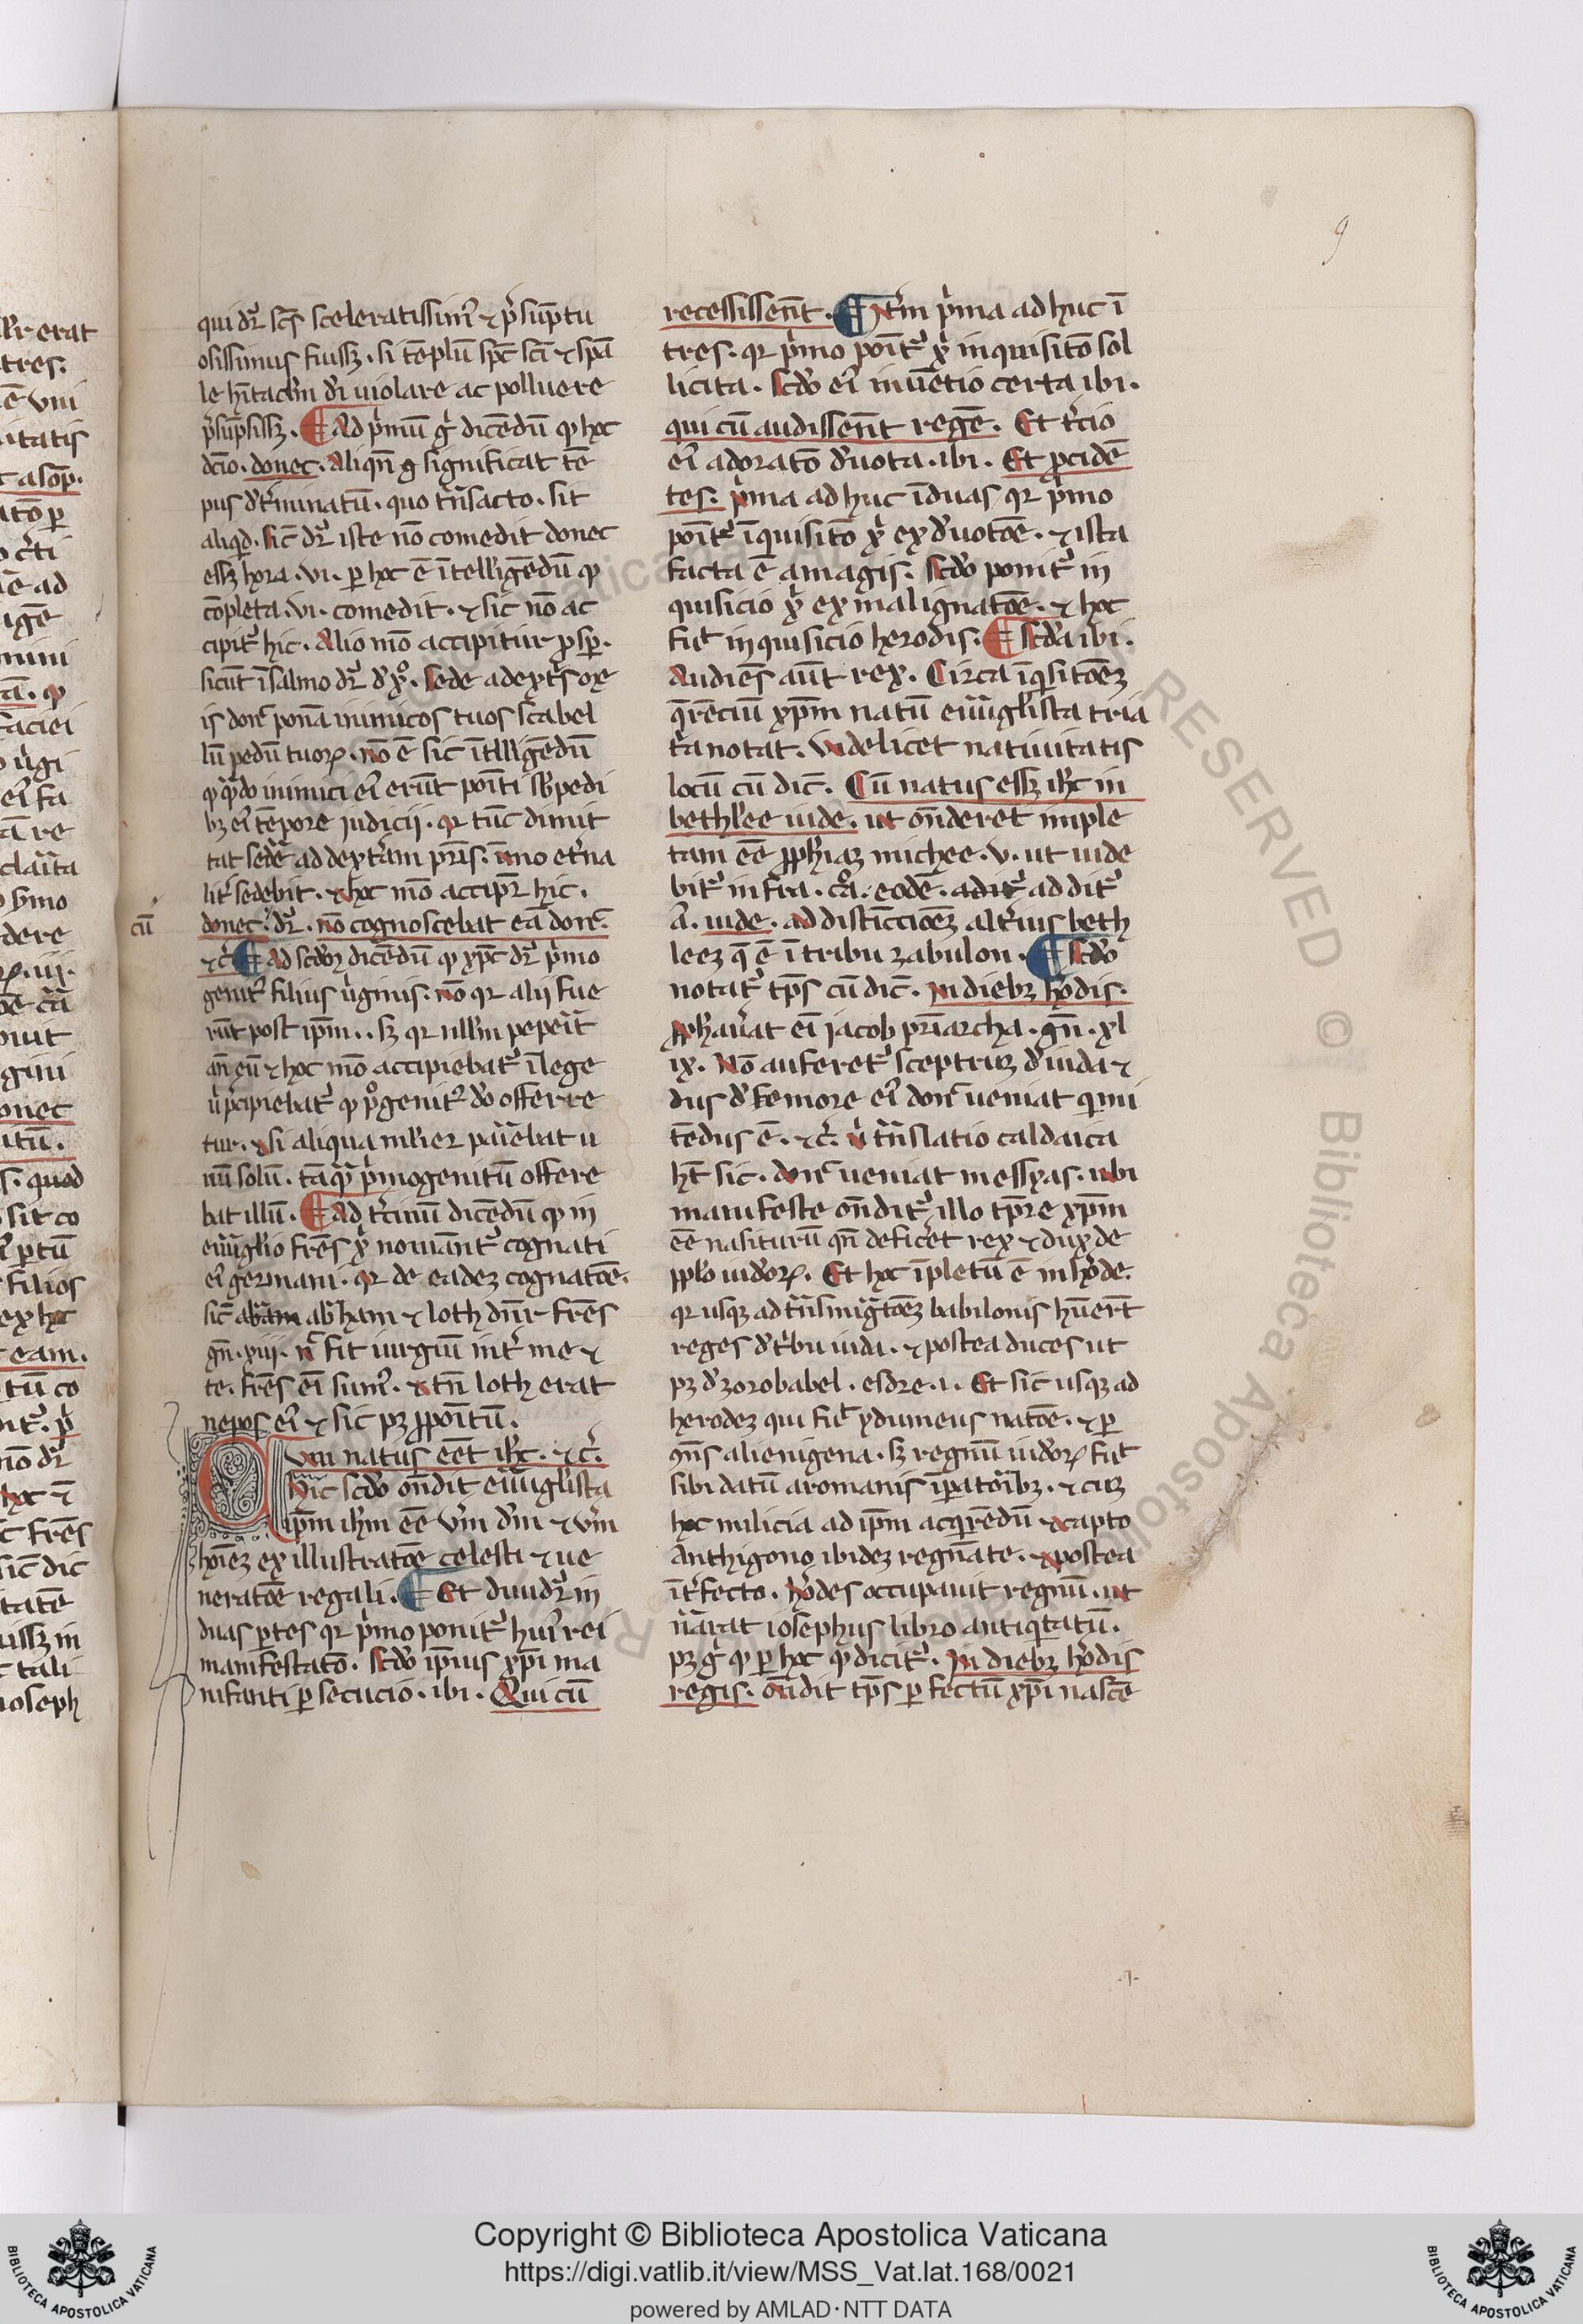 9
qui dr̄ scs̄ sceleratissimꝰ ⁊ p̄sūptu
osissimus fuissꝫ. si tēplū spc̄ sc̄i ⁊ spā
le hītac̄m dī uiolare ac polluere
p̄sūpsissꝫ. ¶ Ad p̄mū gͥ dicēdū ꝙ hoc
dc̄io. donec. Aliqn̄ g̵ significat tē
pus dt̄minatū. quo tn̄sacto. sit
aliqͥd. sic̄ dr̄ iste nō comedit donec
essꝫ hora. vi. ꝑ hoc ē ītelligēdū ꝙ
cōpleta. vi. comedit. ⁊ sic nō ac
cipitꝰ hic. Alio mō accipitur ꝓ sꝑ.
sicut ī salmo dr̄ d' xͦ. Sede a dext̄s me
is donc̄ ponā inimicos tuos scabel
lū pedū tuoꝝ. nō ē sic ītlligēdū
ꝙ qn̄do inimici eiꝰ erūt poīti sb̄ pedi
bꝫ eiꝰ tēpore iudicii. qr tūc dimit
tat sedē ad dext̄am pr̄is. īmo et̄na
lit̄ sedebit. ⁊ hoc mō accipr̄ hic.
cū
donec. dr̄. nō cognoscebat eā donc̄.
⁊c̄ ¶ Ad scd̄m dicēdū ꝙ xpc̄ dr̄ p̄mo
genitꝰ filius ūginis. nō qr alij fue
rūt post ip̄m. sꝫ qr nullm̄ pepit̄
an̄ eū ⁊ hoc mō accipiebatꝰ ī lege
u̇ p̄cipiebatꝰ ꝙ p̄genitꝰ do offerre
tur. ⁊ si aliqua mlier paīebat u
nū solū. tāqͣ p̄mogenitū offere
bat illū. ¶ Ad t̄ciuū dicēdū ꝙ in
euāglio frēs xͥ noīantꝰ cognati
eiꝰ germani. qr de eadeꝫ cognatōe.
sic̄ abrāam ab̄ham ⁊ loth dn̄r frēs
gn̄. xiij. nͦ sit iurgiū int̄ me ⁊
te. frēs eī sumꝰ. ⁊ tn̄ loth erat
nepos eiꝰ ⁊ sic pꝫ ꝓpoītū.
Cum natus eēt ihc̄. ⁊c̄.
Hic scd̄o on̄dit euāglista
ip̄m ih̄m eē v̄m dm̄ ⁊ v̄m
hoīeꝫ ex illustratōe celesti ⁊ ue
neratōe regali. ¶ Et diuidr̄ in
duas ꝑtes qr p̄mo ponitꝰ huiꝰ rei
manifestatō. Scd̄o ip̄ius xp̄i ma
nifanti ꝑsecucio. ibi. Qui cū
recessissent. ¶ Itm̄ p̄ma ad huc ī
tres. qr p̄mo poītꝰ xͥ inquisitō sol
licita. Scd̄o eiꝰ inuētio certa ibi.
qui cū audissent regē. Et t̄cio
eiꝰ adoratō d'uota. ibi. Et ꝓcidē
tes. p̄ma ad huc ī duas qr p̄mo
poītꝰ īquisitō xͥ ex d'uotōe. ⁊ ista
facta ē a magis. Scd̄o ponitꝰ in
quisicio xͥ ex malignatōe. ⁊ hoc
fuit inquisicio herodis. ¶ Scd̄a ibi.
Audiēs aūt rex. Circa īqͥsitōeꝫ
q̄rēciū xp̄m natū euāglista tria
t̄a notat. Videlicet natiuitatis
locū cū dic̄. Cū natus essꝫ ihc̄ in
bethlee iude. ut on̄deret imple
tam eē ꝓph̄iaꝫ michee. v. ut uide
bitꝰ infra. cͣ. eodē. aditꝰ additꝰ
A. iude. ad distīccōeꝫ alt̄ius beth
leeꝫ q̄ ē ī tribu zabulon. ¶ Scd̄o
notatꝰ tp̄s cū dic̄. In diebꝫ h̄odis.
ꝓph̄aūat eī iacob pr̄iarcha. gn̄. xl
ix. Nō auferetꝰ sceptruꝫ d' iuda ⁊
dus d' femore eiꝰ donc̄ ueniat qͥ mi
tēdus ē. ⁊c̄. u̇ tn̄slatio caldaica
ht̄ sic. donc̄ ueniat messyas. ubi
manifeste on̄ditꝰ illo tp̄re xp̄m
eē nasiturū qn̄ deficēt rex ⁊ dux de
ppl̄o iud̄oꝝ. Et hoc īpletū ē in h̄ode.
qr usqꝫ ad tn̄smigͣtōeꝫ babilonis hūert̄
reges d' t̄bu iuda. ⁊ postea duces ut
pꝫ d' zorobabel. esdre. i. Et sic usqꝫ ad
herodeꝫ qui fuit ydumeus natōe. ⁊ ꝑ
ꝯn̄s alienigena. sꝫ regnū iud̄oꝝ fuit
sibi datū a romanis īꝑatorībꝫ. ⁊ cuꝫ
hoc milicia ad ip̄m acqͥrēdū ⁊ capto
Anthigono ibideꝫ regnāte. ⁊ postea
īt̄fecto. h̄odes occupauit regnū. ut
nārat iosephus libro antiqͥtatū.
pꝫ gͥ ꝙ ꝑ hoc ꝙ dicitꝰ. In diebꝫ h̄odis
regis. on̄dit tp̄s ꝑfectū xp̄i nascē
Copyright © Biblioteca Apostolica Vaticana
https://digi.vatlib.it/view/MSS_Vat.lat.168/0021
powered by AMLAD·NTT DATA
BIBLIOTECA APOSTOLICA VATICANA
BIBLIOTECA APOSTOLICA VATICANA